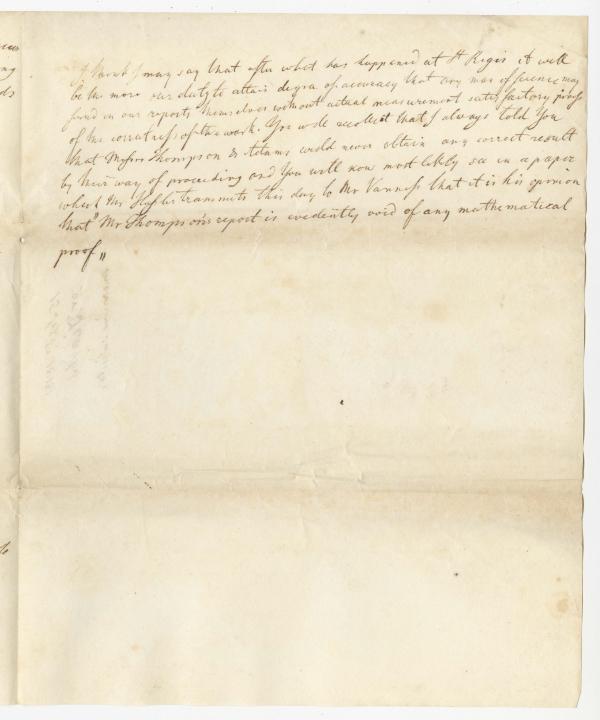 I think I may say that after what has happened at St Regis it will
be the more our duty to attain degree of accuracy that any man of science may
find in our reports themselves without actual measurement satisfactory proofs
of the correctness of the work. You will recollect that I always told You
that Messrs Thompson & Adams could never obtain any correct result
by their way of proceeding and You will now most likely see in a paper
which Mr Hassler transmits this day to Mr Vanness that it is his opinion
"that Mr Thompson's report is evidently void of any mathematical
proof"